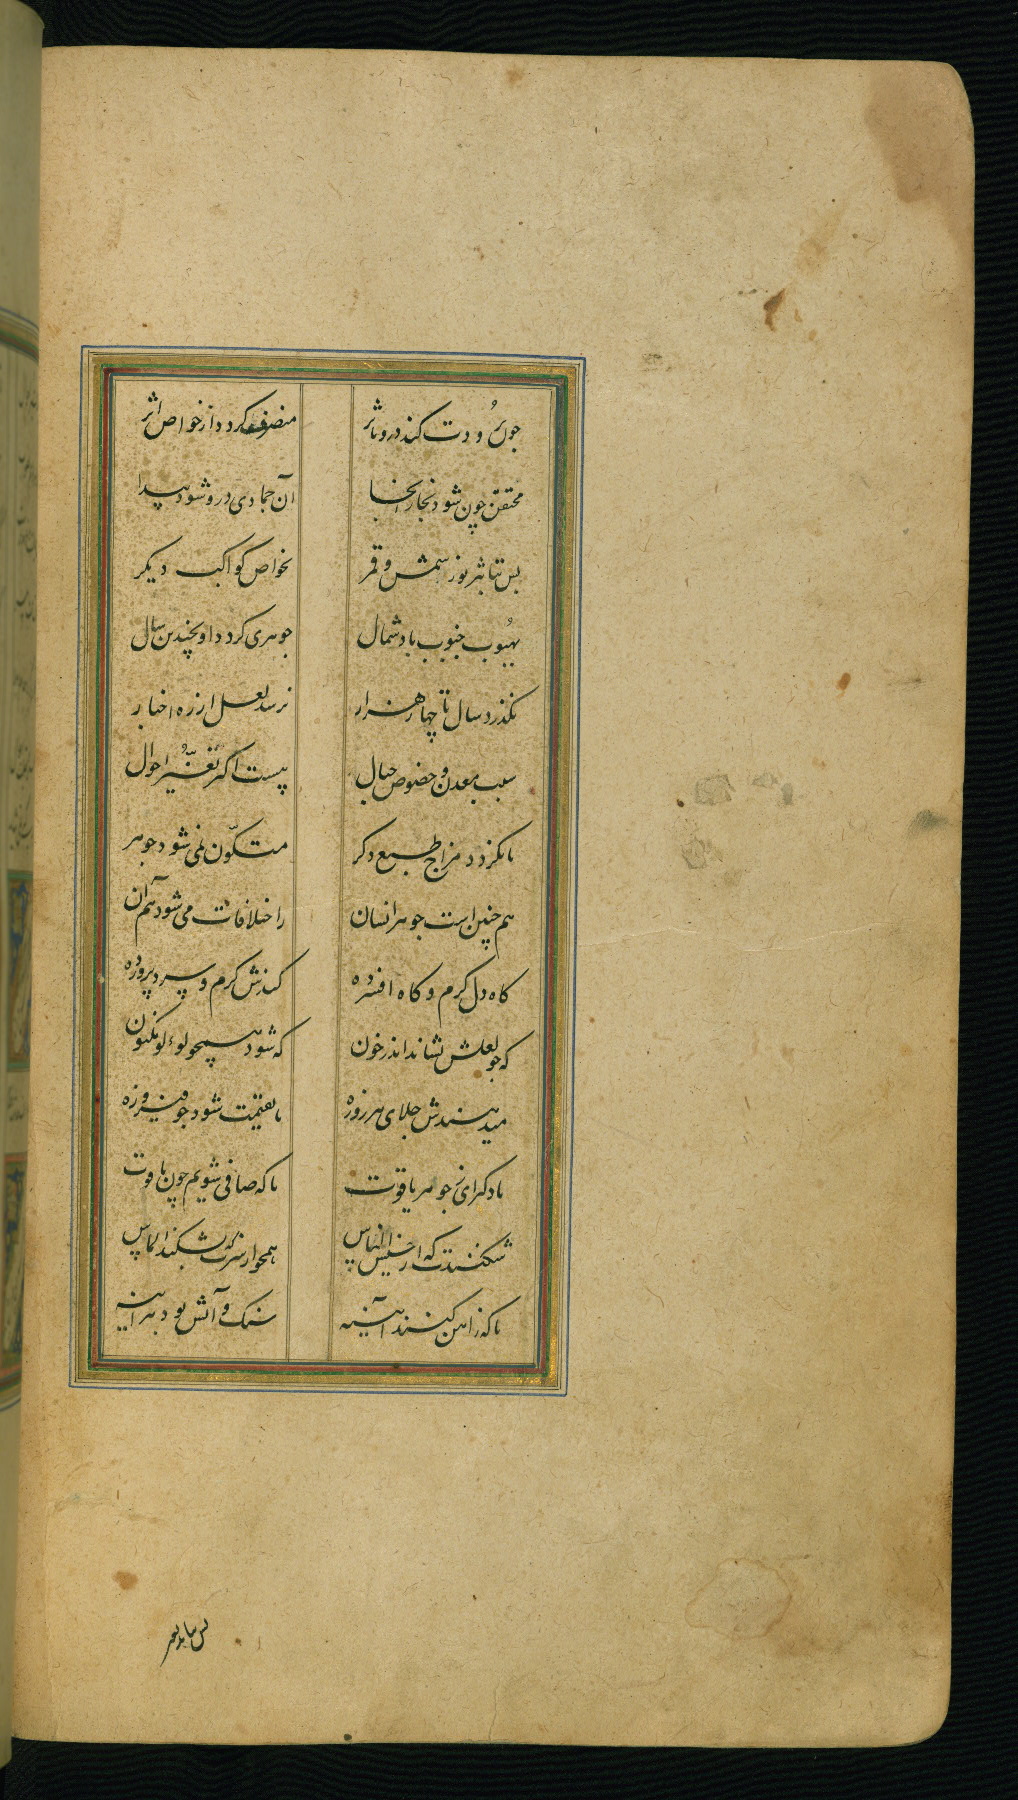 چون برودت کند درو تاثر
منصرف کردد از خواص اثر
محتقن چون شود بخار انجا
آن جمادی درو شود پیدا
پس بتاثیر نور شمس و قمر
بخواص کواکب دیکر
بهبوب جنوب باد شمال
جوهری کردد او بچندین سال
نکذرد سال تا چهار هزار
نرسد لعل از زه اخبار
سبب معدن و خصوص جبال
پیست اکر تغیّر احوال
تا نکردد مزاج طبع دکر
متکوّن نمی شود جوهر
هم چنین است جوهر انسان
را ختلافات می شود آهم ان
کاه دل کرم و کاه افسرده
کندش کرم و سرد پرورده
که جو لعلش نشاند اندر خون
که شود همچو لوء لو مکنون
میدهندش جلای هر روزه
تا بقیمت شود جو فیروزه
یا دکر ای ز جوهر یاقوت
تا که صافی شویم چون یاقوت
شکنندت که ار خسیس الناس
همجو ارزیزکت شکند الماس
تا که ز اهن کنند آهینه
سنک و آتش بود بهر آینه